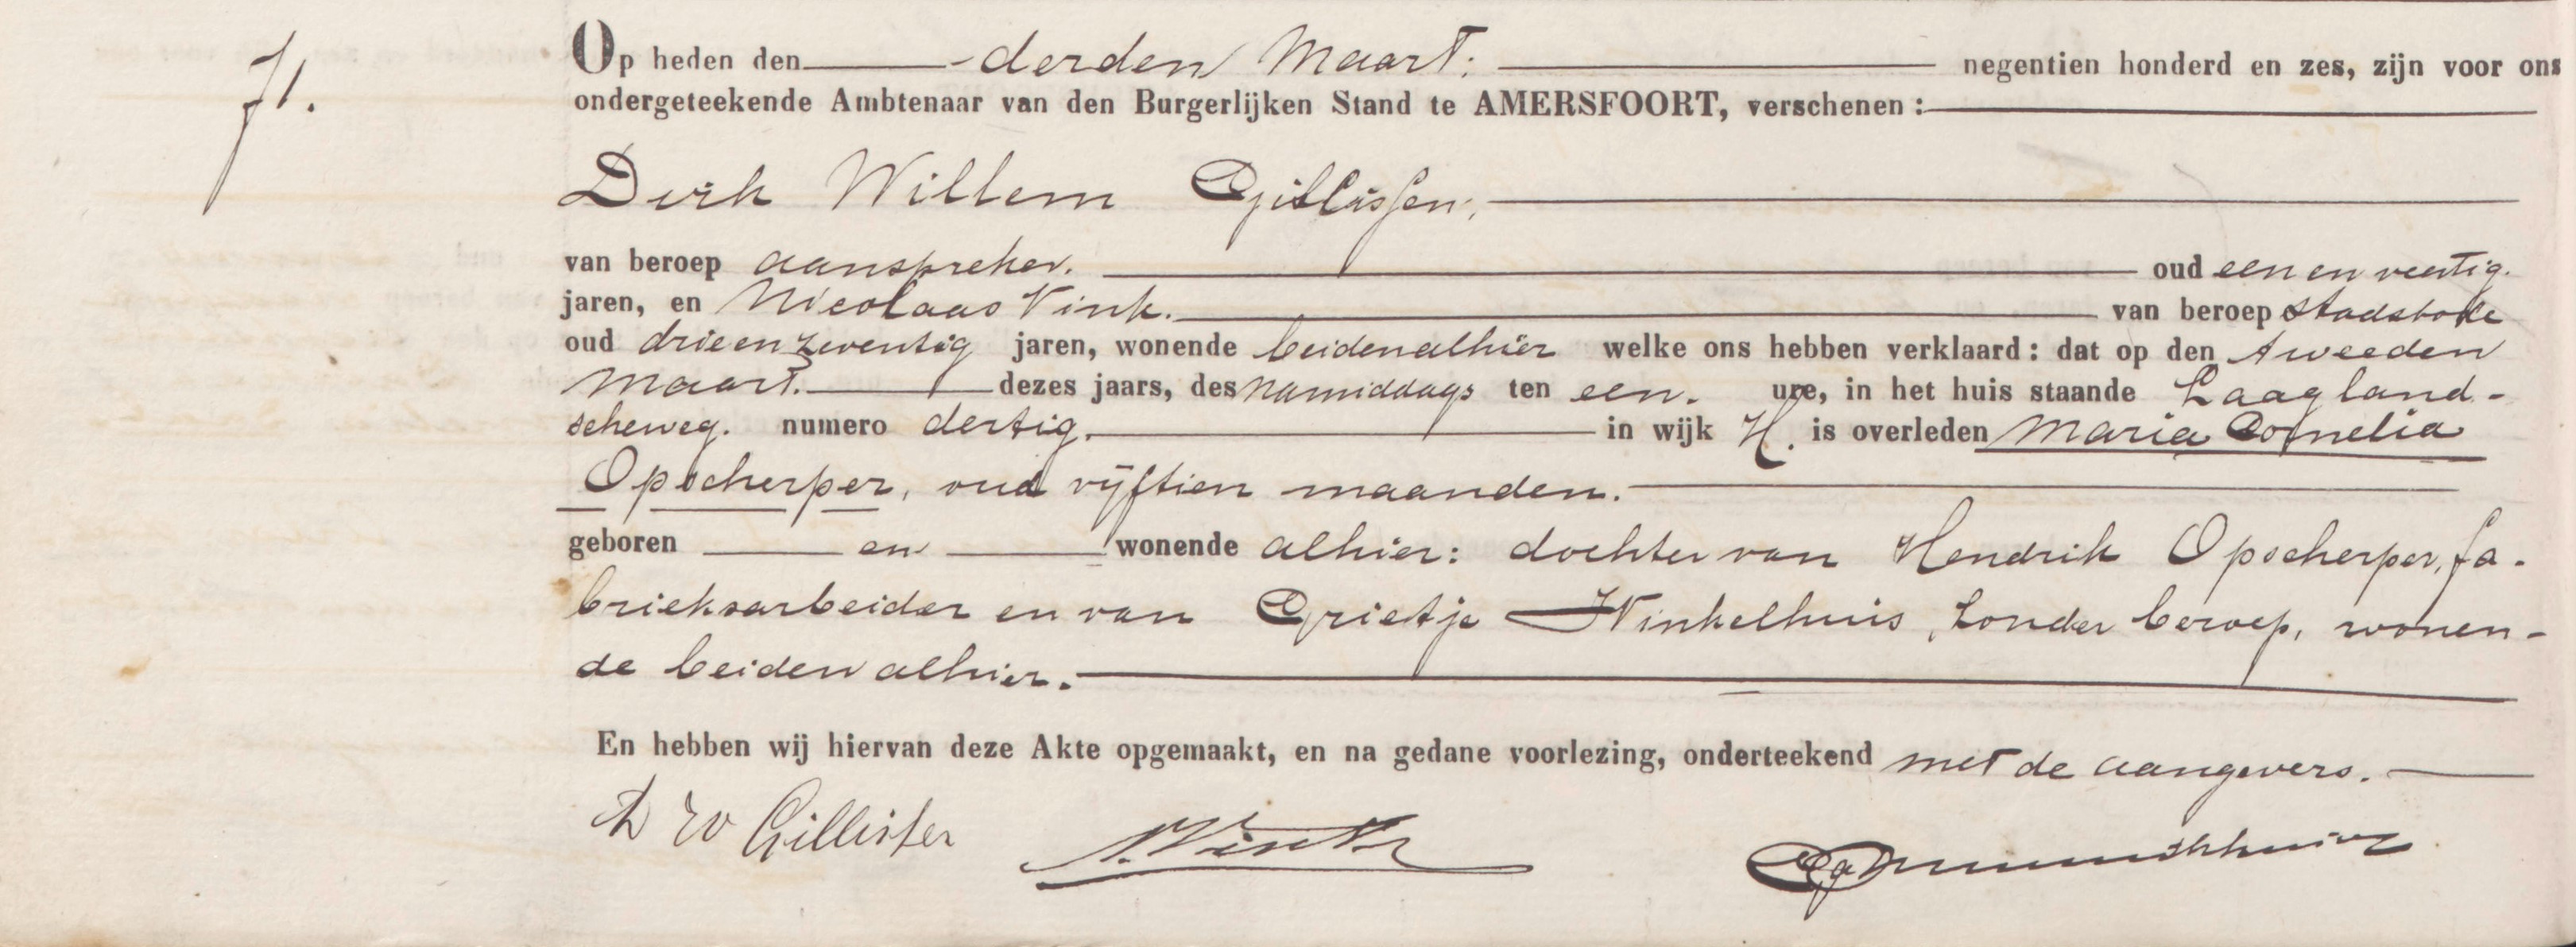 71.
Op heden den derden Maart. negentien honderd en zes, zijn voor ons
ondergeteekende Ambtenaar van den Burgerlijken Stand te AMERSFOORT, verschenen :
Dirk Willem Gillissen,
van beroep aanspreker. oud een en veertig.
jaren, en Nicolaas Vink. van beroep stadsbode
oud drie en zeventig jaren, wonende beiden alhier welke ons hebben verklaard : dat op den tweeden
Maart. dezes jaars, des namiddags ten een. ure, in het huis staande Laagland-
scheweg. numero dertig. in wijk H. is overleden Maria Cornelia
Opscherper, oud vijftien maanden.
geboren en wonende alhier: dochter van Hendrik Opscherper, fa-
brieksarbeider en van Grietje Winkelhuis, zonder beroep, wonen-
de beiden alhier.
En hebben wij hiervan deze Akte opgemaakt, en na gedane voorlezing, onderteekend met de aangevers.
D W Gillissen N. Vink